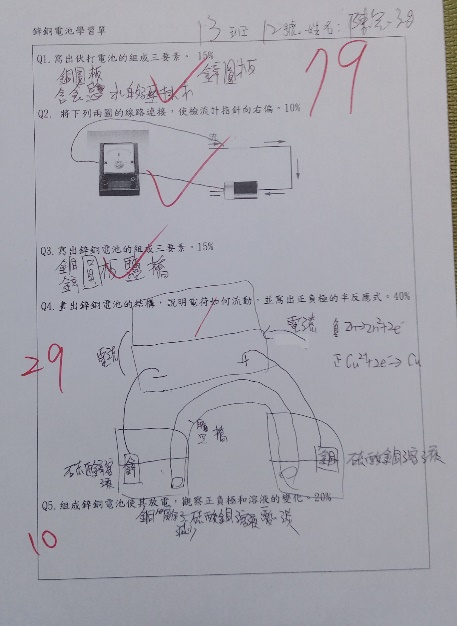 鋅銅電池學習單
13班 12號 姓名:陳
79
Q1. 寫出伏打電池的組成三要素。15%
銅圓板 鋅圓板
含食鹽水的
Q2. 將下列兩圖的線路連接，使檢流計指針向右偏。10%
Q3. 寫出鋅銅電池的組成三要素。15%
銅
鋅 板 鹽橋
Q4. 畫出鋅銅電池的結構，說明電荷如何流動，並寫出正負極的半反應式。40%
電流 負 Zn→Zn²⁺+2e⁻
電流 正 Cu²⁺+2e⁻→Cu
29
鹽橋
硫酸鋅溶液 鋅 銅 硫酸銅溶液
Q5. 組成鋅銅電池使其放電，觀察正負極和溶液的變化。20%
硫酸銅溶液變淡
10